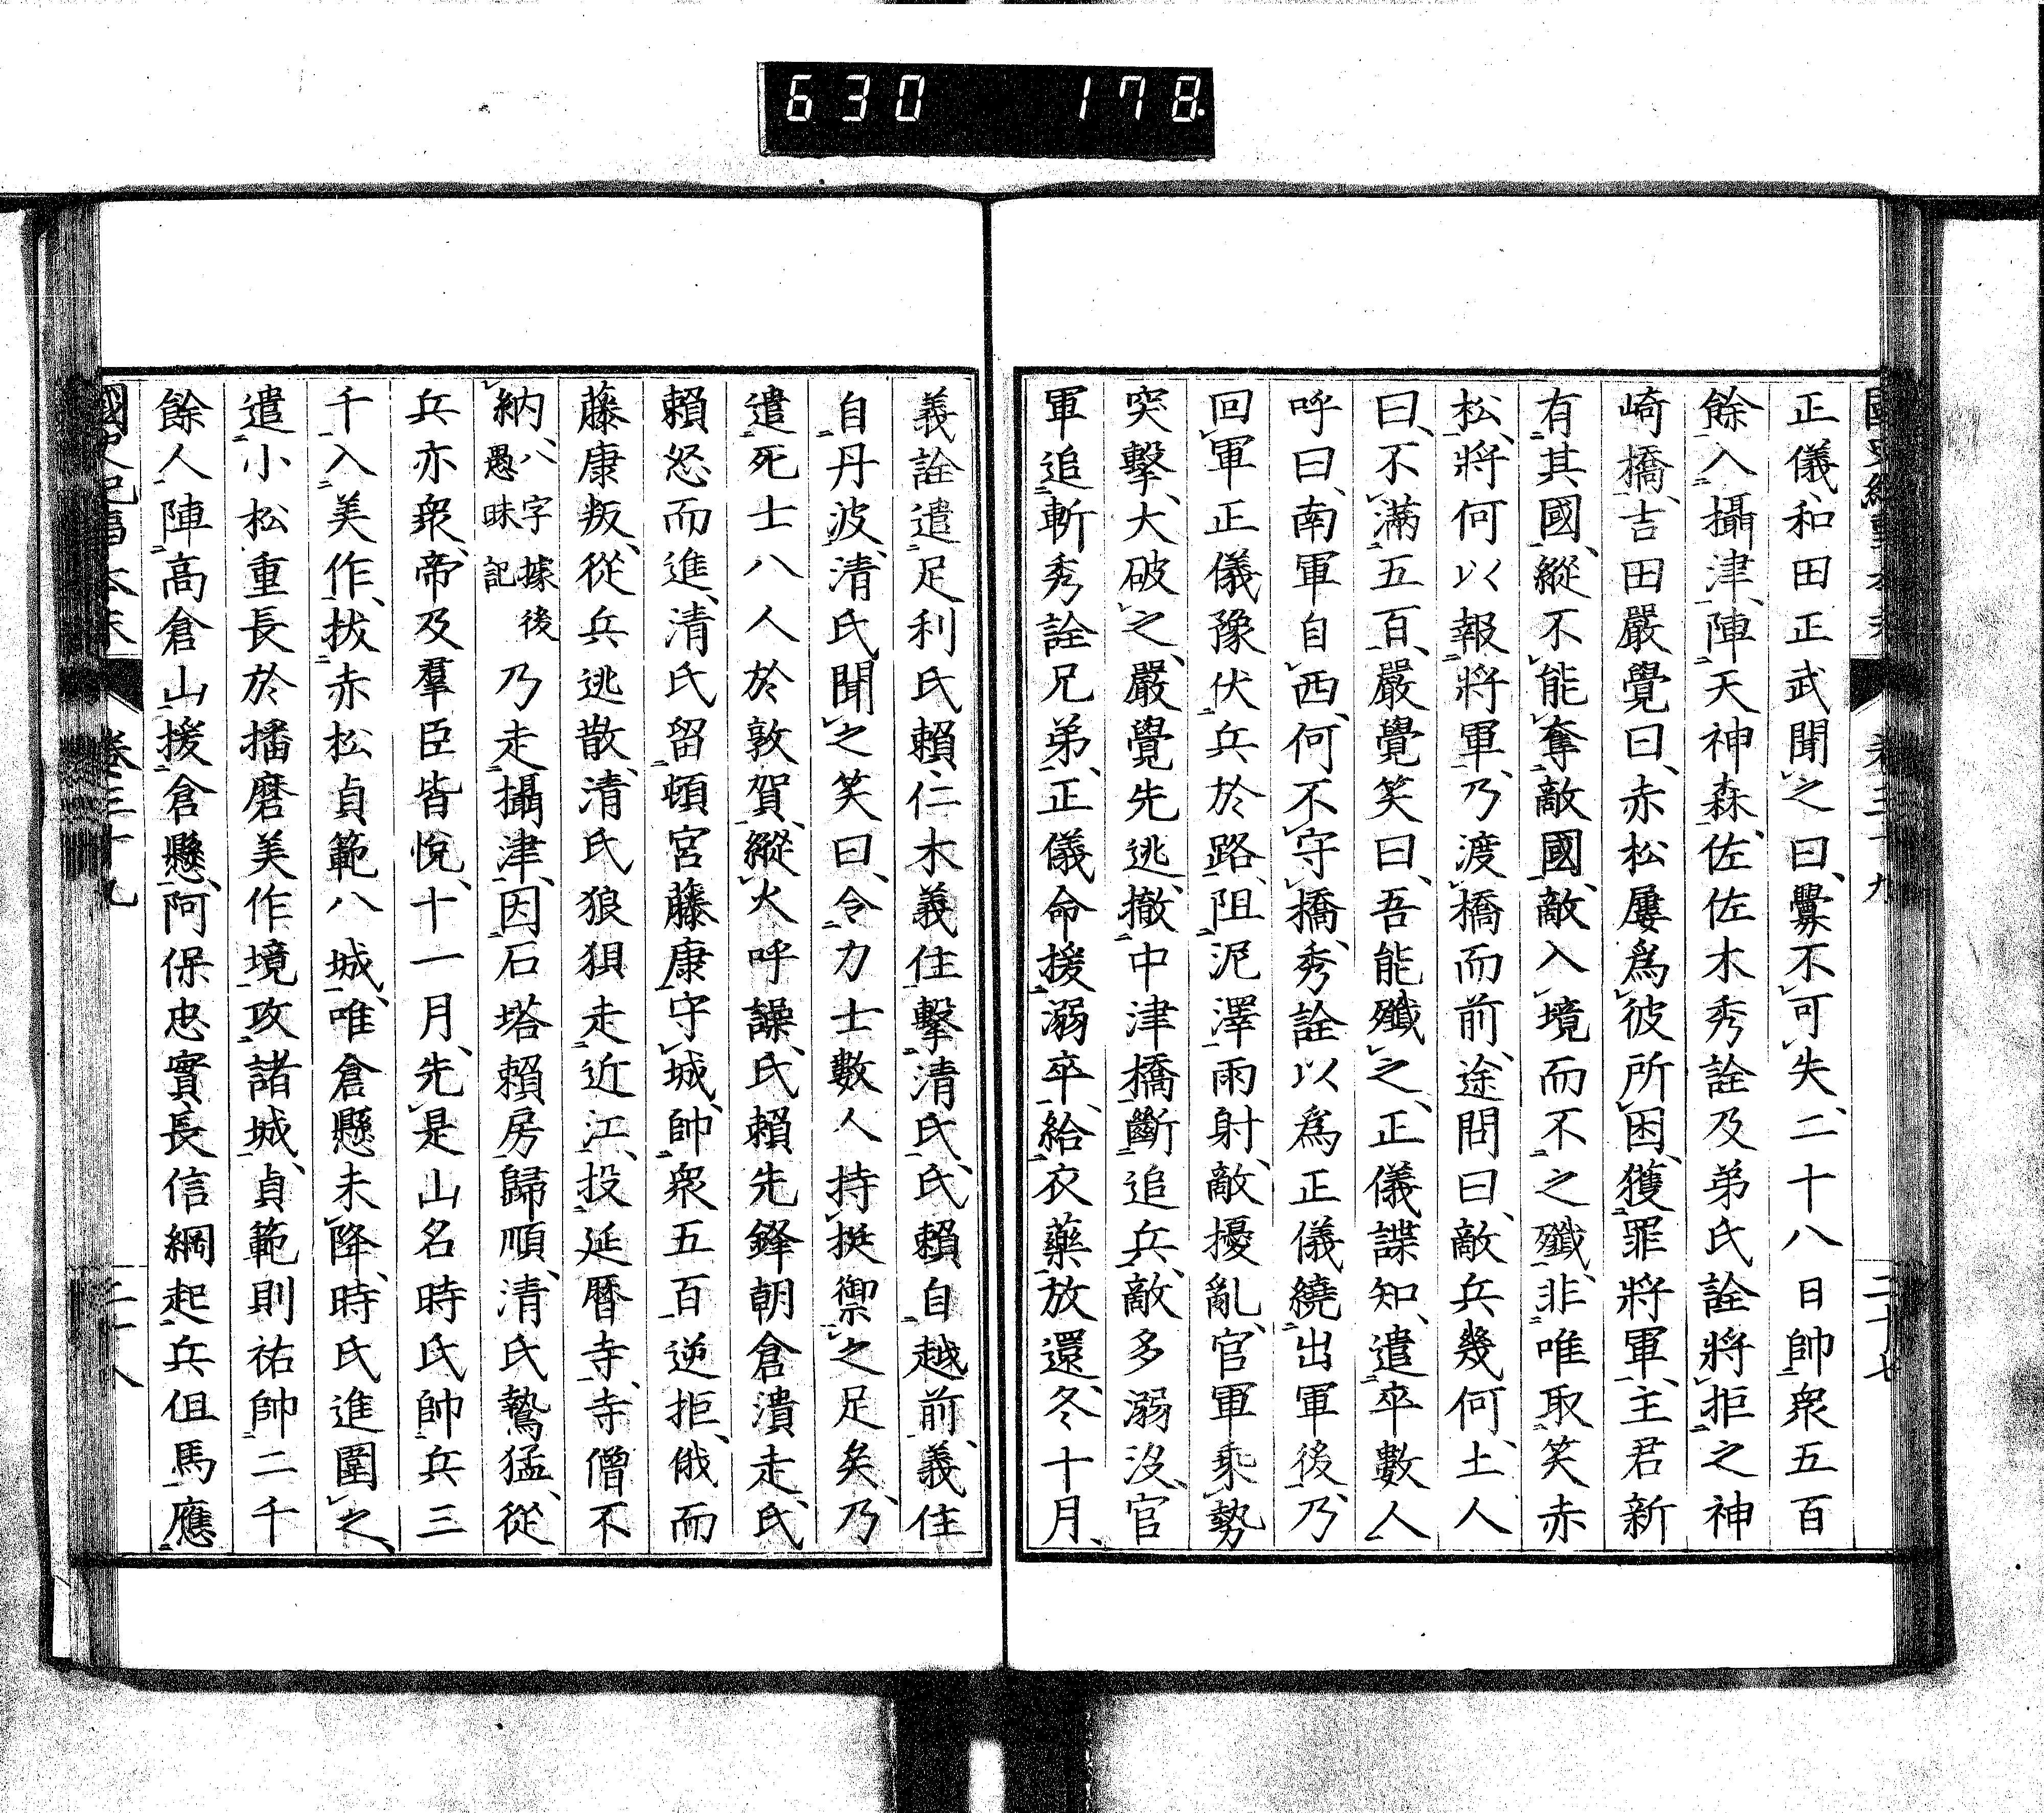 630 178
正儀、和田正武聞之曰、釁不可失、二十八日帥衆五百
餘入攝津、陣天神森、佐佐木秀詮及弟氏詮將拒之神
崎橋、吉田嚴覺曰、赤松屢爲彼所困、獲罪將軍、主君新
有其國、縱不能奪敵國、敵入境而不之殲、非唯取笑赤
松、將何以報將軍、乃渡橋而前、途問曰、敵兵幾何、土人
曰、不滿五百、嚴覺笑曰、吾能殲之、正儀諜知、遣卒數人
呼曰、南軍自西、何不守橋、秀詮以爲正儀繞出軍後、乃
回軍正儀豫伏兵於路、阻泥澤雨射、敵擾亂、官軍乘勢
突擊、大破之、嚴覺先逃、撤中津橋斷追兵、敵多溺沒、官
軍追斬秀詮兄弟、正儀命援溺卒、給衣藥放還、冬十月、
義詮遣足利氏賴、仁木義住擊清氏、氏賴自越前、義住
自丹波、清氏聞之笑曰、令力士數人持挺禦之足矣、乃
遣死士八人於敦賀、縱火呼譟、氏賴先鋒朝倉潰走、氏
賴怒而進、清氏留頓宮藤康守城、帥衆五百逆拒、俄而
藤康叛、從兵逃散、清氏狼狽走近江、投延曆寺、寺僧不
納、八字據後愚昧記乃走攝津、因石塔賴房歸順、清氏鷙猛、從
兵亦衆、帝及羣臣皆悅、十一月、先是山名時氏帥兵三
千入美作、拔赤松貞範八城、唯倉懸未降、時氏進圍之、
遣小松重長於播磨美作境、攻諸城、貞範則祐帥二千
餘人陣高倉山援倉懸、阿保忠實、長信綱起兵但馬應
國史紀事本末 卷三十九 二十八